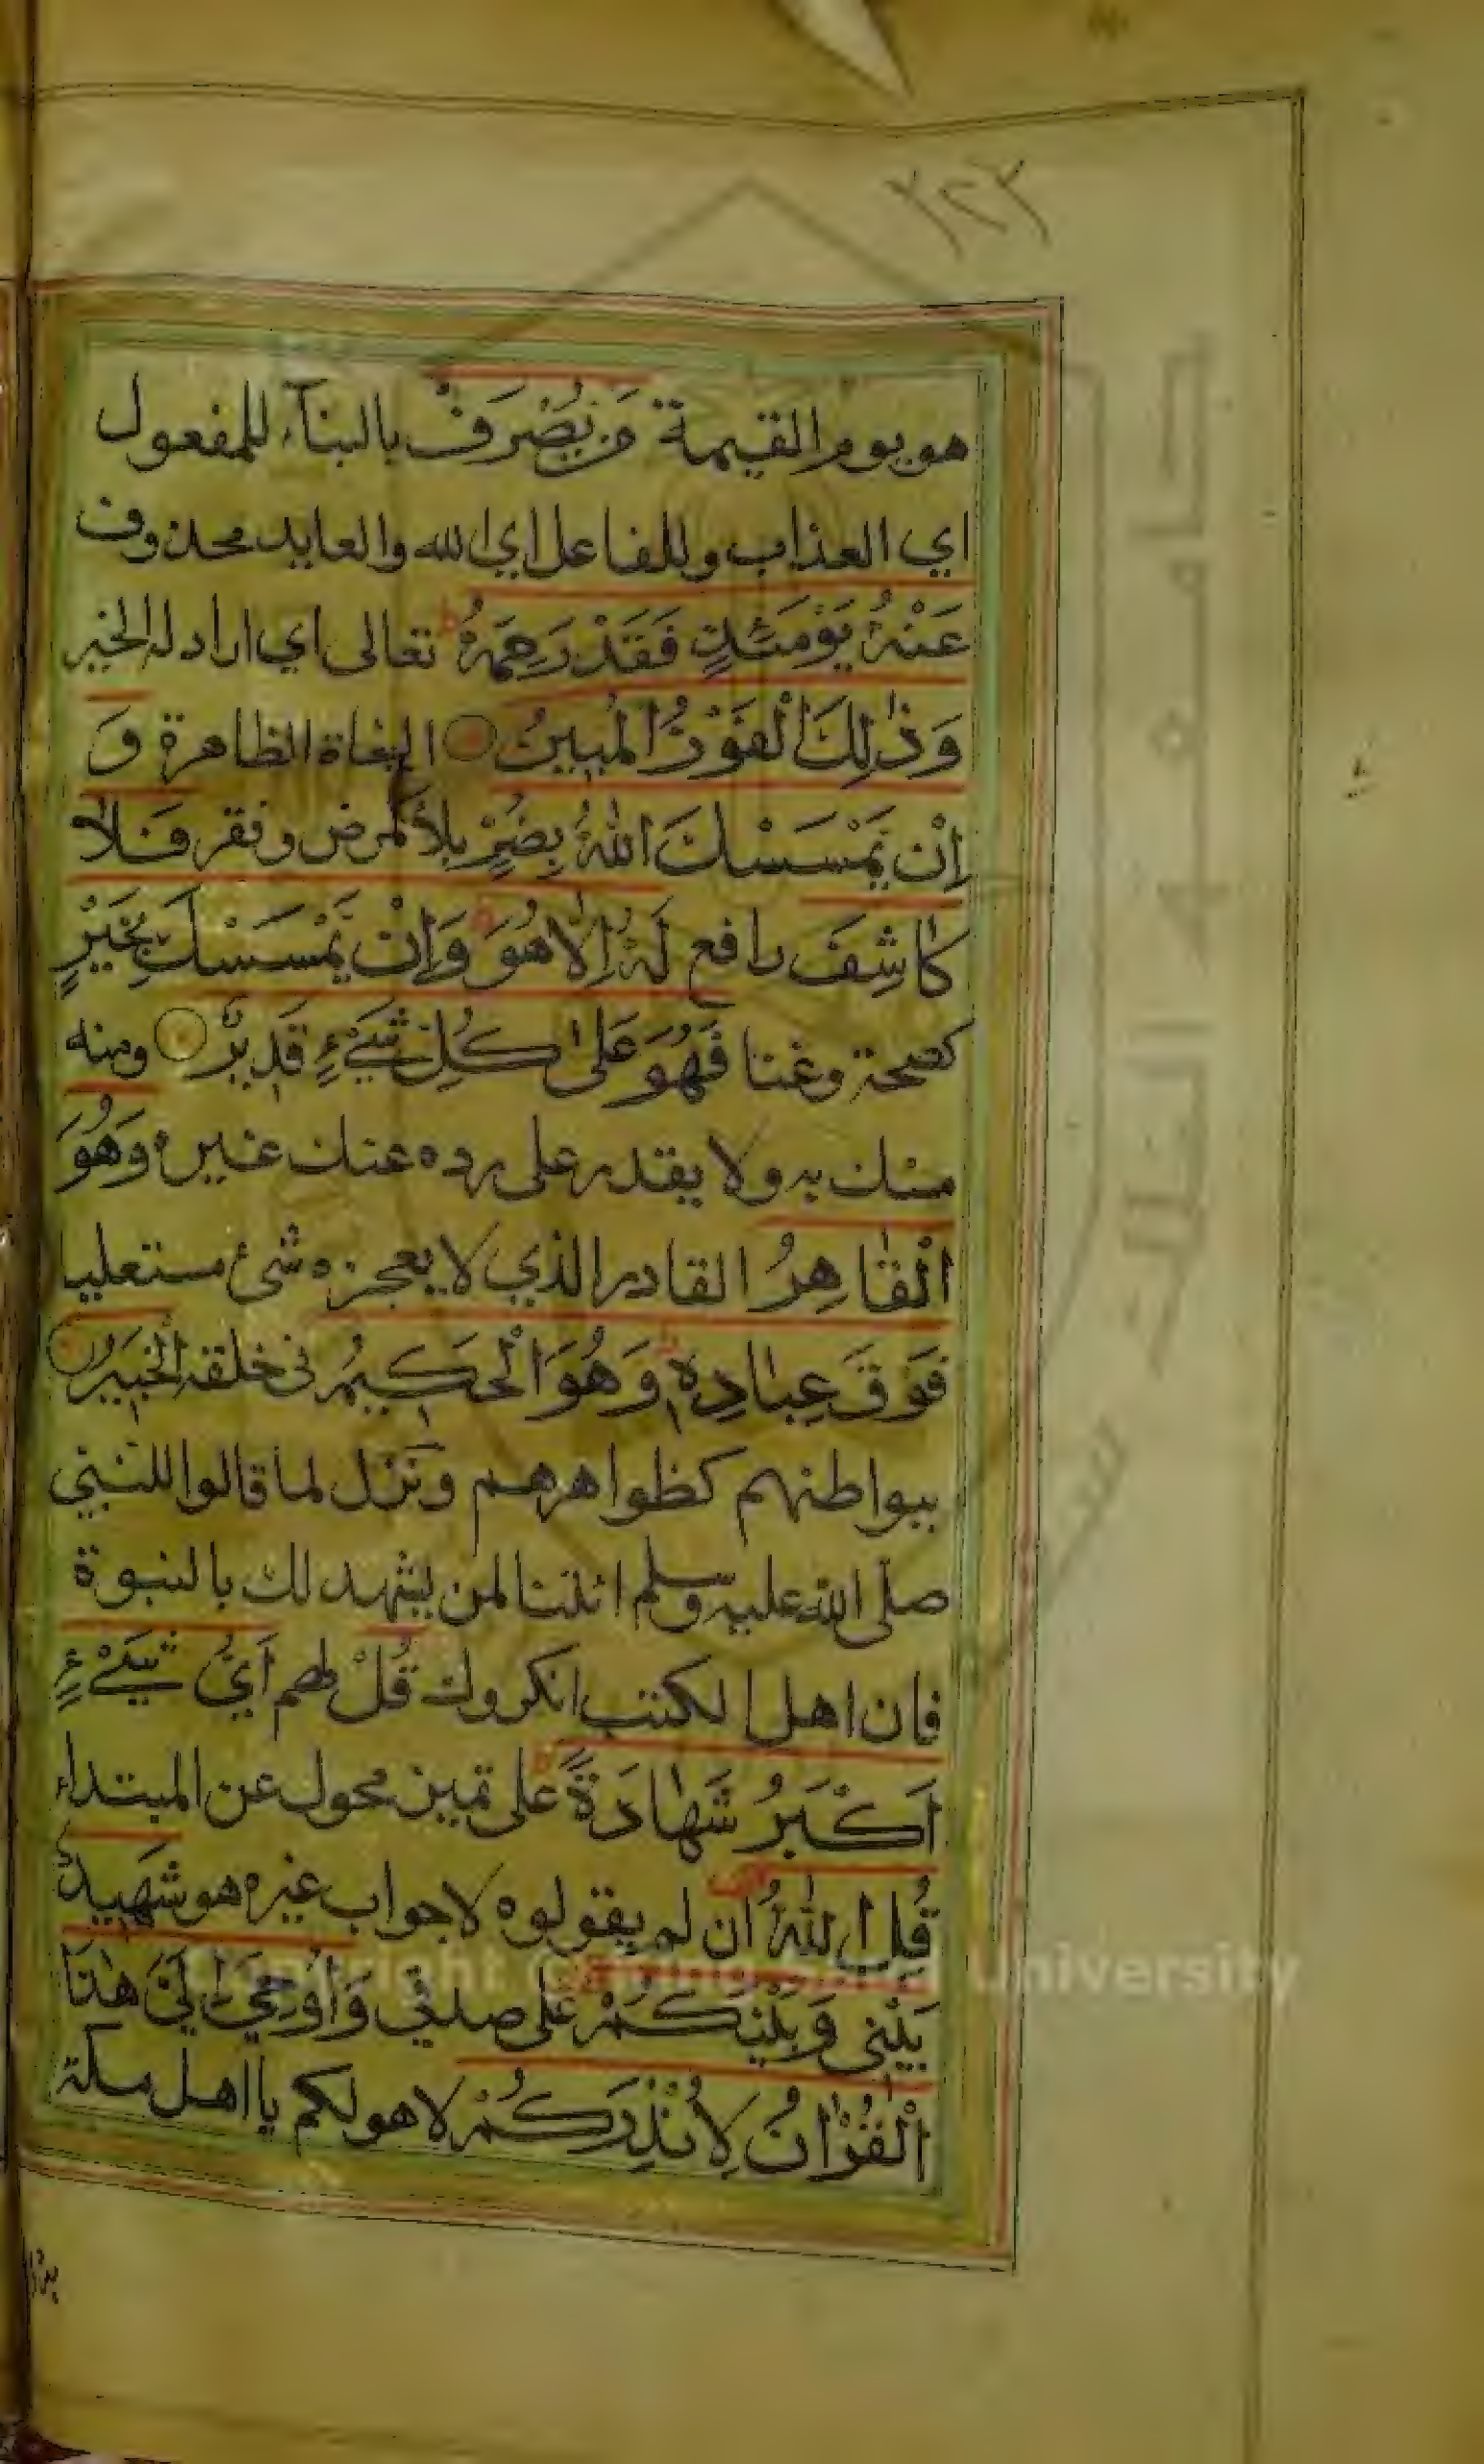 ٢٢٢
هو يوم القيمة مَن يُصْرَفْ بالبنآء للمفعول
اي العذاب وللفاعل اي الله والعايد محذوف
عَنْهُ يَوْمَئِذٍ فَقَدْ رَحِمَهُ ط تعالى اي اراد له الخير
وَذٰلِكَ الْفَوْزُ الْمُبِينُ النجاة الظاهرة وَ
اِنْ يَمْسَسْكَ اللهُ بِضُرٍّ بلاء كمرض وفقر فَلَا
كَاشِفَ رافع لَهُ اِلَّا هُوَ وَاِنْ يَمْسَسْكَ بِخَيْرٍ
كصحة وغنا فَهُوَ عَلٰى كُلِّ شَيْءٍ قَدِيرٌ ومنه
مسك به ولا يقدر على رده عنك غيره وَهُوَ
الْقَاهِرُ القادر الذي لا يعجزه شئ مستعليا
فَوْقَ عِبَادِهِ وَهُوَ الْحَكِيمُ في خلقه الْخَبِيرُ
ببواطنهم كظواهرهم ونزل لما قالوا للنبي
صلى الله عليه وسلم ائتنا لمن يشهد لك بالنبوة
فان اهل الكتب انكروك قُلْ لهم اَيُّ شَيْءٍ
اَكْبَرُ شَهَادَةً على تميز محول عن المبتداء
قُلِ اللهُ ان لم يقولوه لا جواب غيره هو شَهِيدٌ
بَيْنِي وَبَيْنَكُمْ على صدقي وَاُوحِيَ اِلَيَّ هٰذَا
الْقُرْاٰنُ لِاُنْذِرَكُمْ لاهولكم يا اهل مكة
جامعة الملك سعود
Copyright © King Saud University